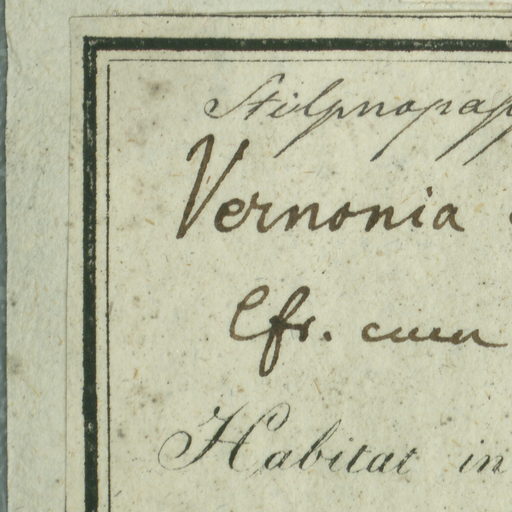 Stilpnopapp
Vernonia
Cfr. cum
Habitat in